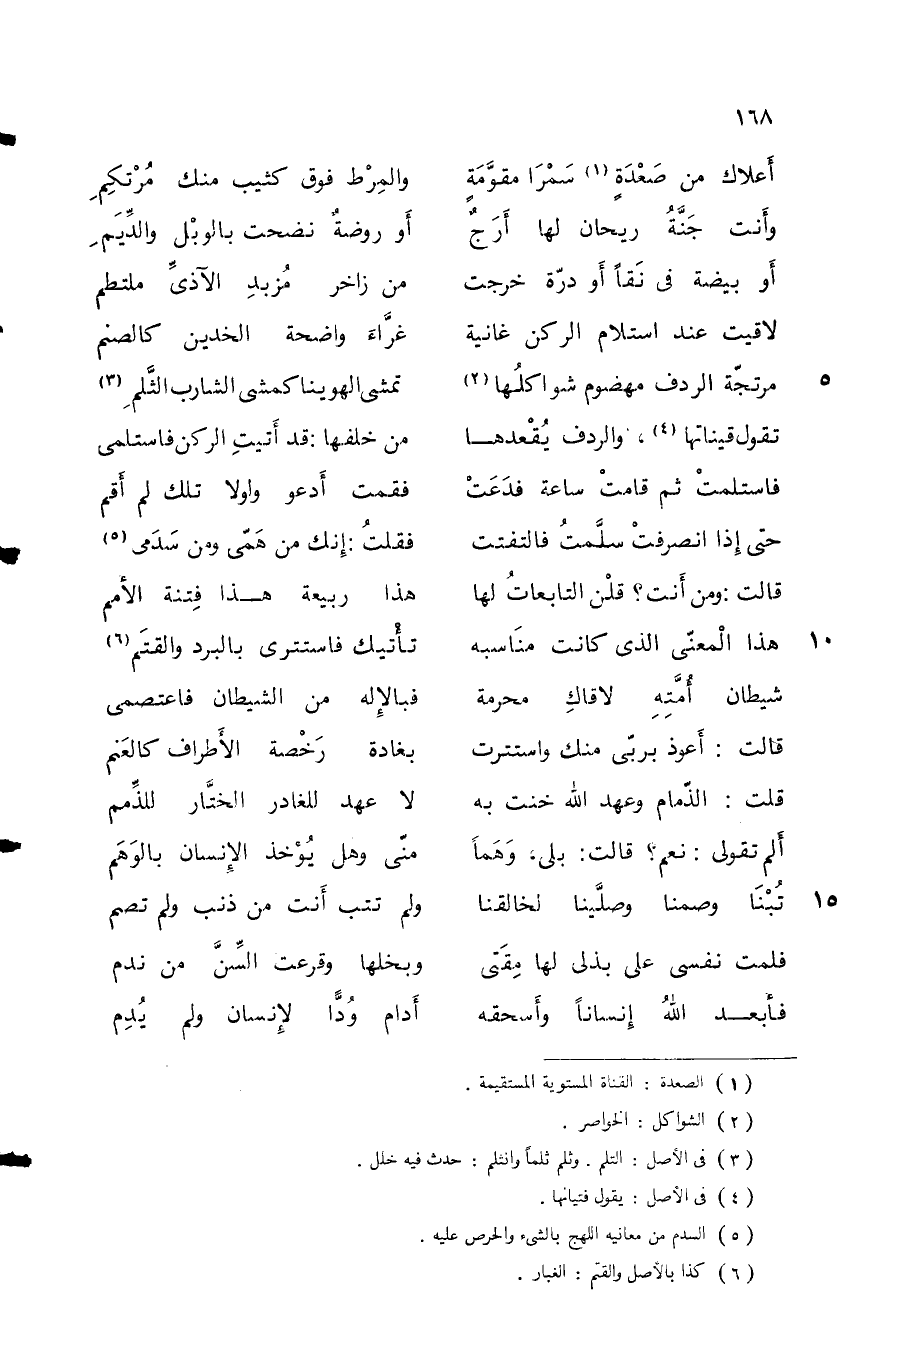 ١٦٨
أعلاك من صَعْدَةٍ (١) سَمْرَا مقوَّمَةٍ والمِرْط فوق كثيب منك مُرْتكِمِ
وأنت جَنَّةُ ريحان لها أَرَجٌ أو روضةٌ نضحت بالوبْل والدِّيَمِ
أو بيضة فى نَقاً أو درّة خرجت من زاخر مُزبدِ الآذىِّ ملتطم
لاقيت عند استلام الركن غانية غرَّاءَ واضحة الخدين كالصنم
٥ مرتجّة الردف مهضوم شواكلُها (٢) تمشى الهوينا كمشى الشارب الثَّلمِ (٣)
تقول قيناتها (٤) ، والردف يُقْعدهـا من خلفها : قد أَتيتِ الركن فاستلمى
فاستلمتْ ثم قامتْ ساعة فدَعَتْ فقمت أدعو ولولا تلك لم أقم
حتى إذا انصرفتْ سلَّمتُ فالتفتت فقلتُ : إنك من هَمّى ومن سَدَمى (٥)
قالت : ومن أنت ؟ قلْن التابعاتُ لها هذا ربيعة هـذا فِتنة الأمم
١٠ هذا الْمعنّى الذى كانت منَاسبه تأْتيك فاستترى بالبرد والقتَم (٦)
شيطان أُمَّتِهِ لاقاكِ محرمة فبالإله من الشيطان فاعتصمى
قالت : أَعوذ بربّى منك واستترت بغادة رَخْصة الأَطراف كالعَنم
قلت : الذّمام وعهد الله خنت به لا عهد للغادر الختَّار للذِّمم
ألم تقولى : نعم ؟ قالت : بلى، وَهَماً منّى وهل يُؤْخذ الإنسان بالوَهَم
١٥ تُبْنَا وصمنا وصلَّينا لخالقنا ولم تتب أنت من ذنب ولم تصم
فلمت نفسى على بذلى لها مِقَتى وبخلها وقرعت السِّنَّ من ندم
فأبعـد اللهُ إنساناً وأَسحقه أَدام وُدًّا لإنسان ولم يُدِم
(١) الصعدة : القناة المستوية المستقيمة .
(٢) الشواكل : الخواصر .
(٣) فى الأصل : التلم . وثلم ثلماً وانثلم : حدث فيه خلل .
(٤) فى الأصل : يقول فتياتها .
(٥) السدم من معانيه اللهج بالشىء والحرص عليه .
(٦) كذا بالأصل والقتم : الغبار .